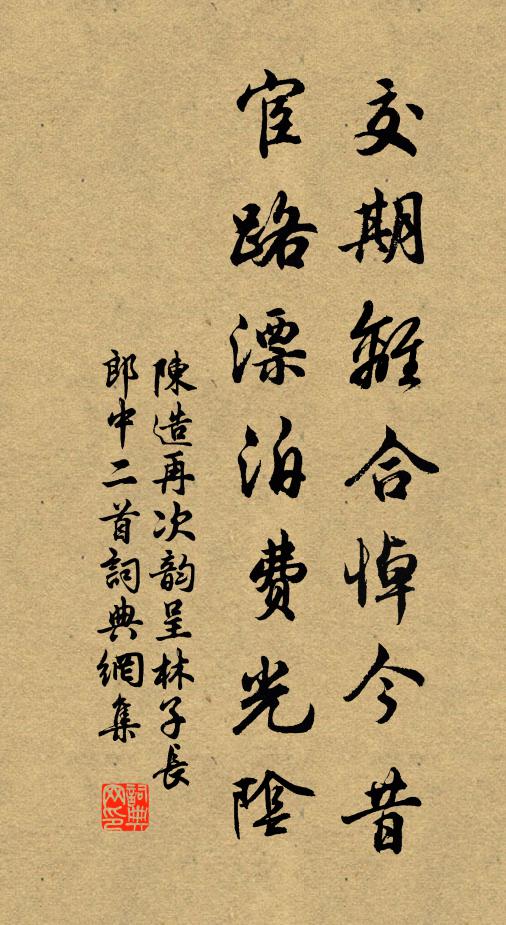 交期離合悼今昔
宦路漂泊費光陰
陳造再次韵呈林子長
郎中二首詞典網集
詞典網印